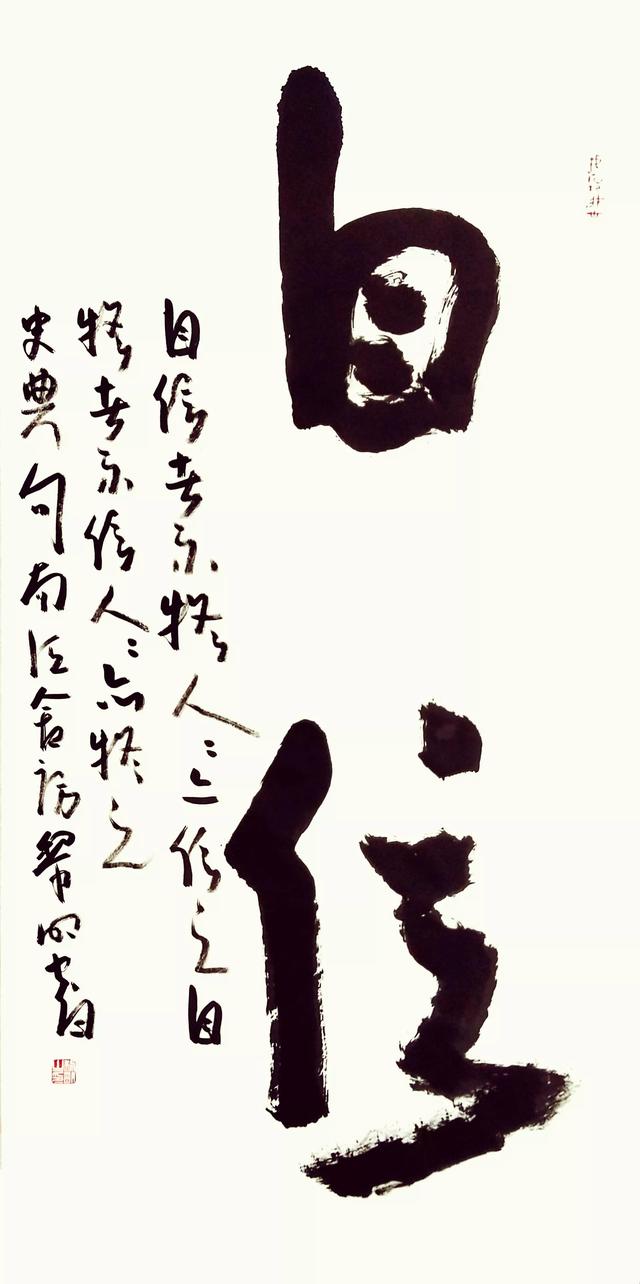 自信
自信者不疑人〻亦信之自
疑者不信人〻亦疑之
史典句南